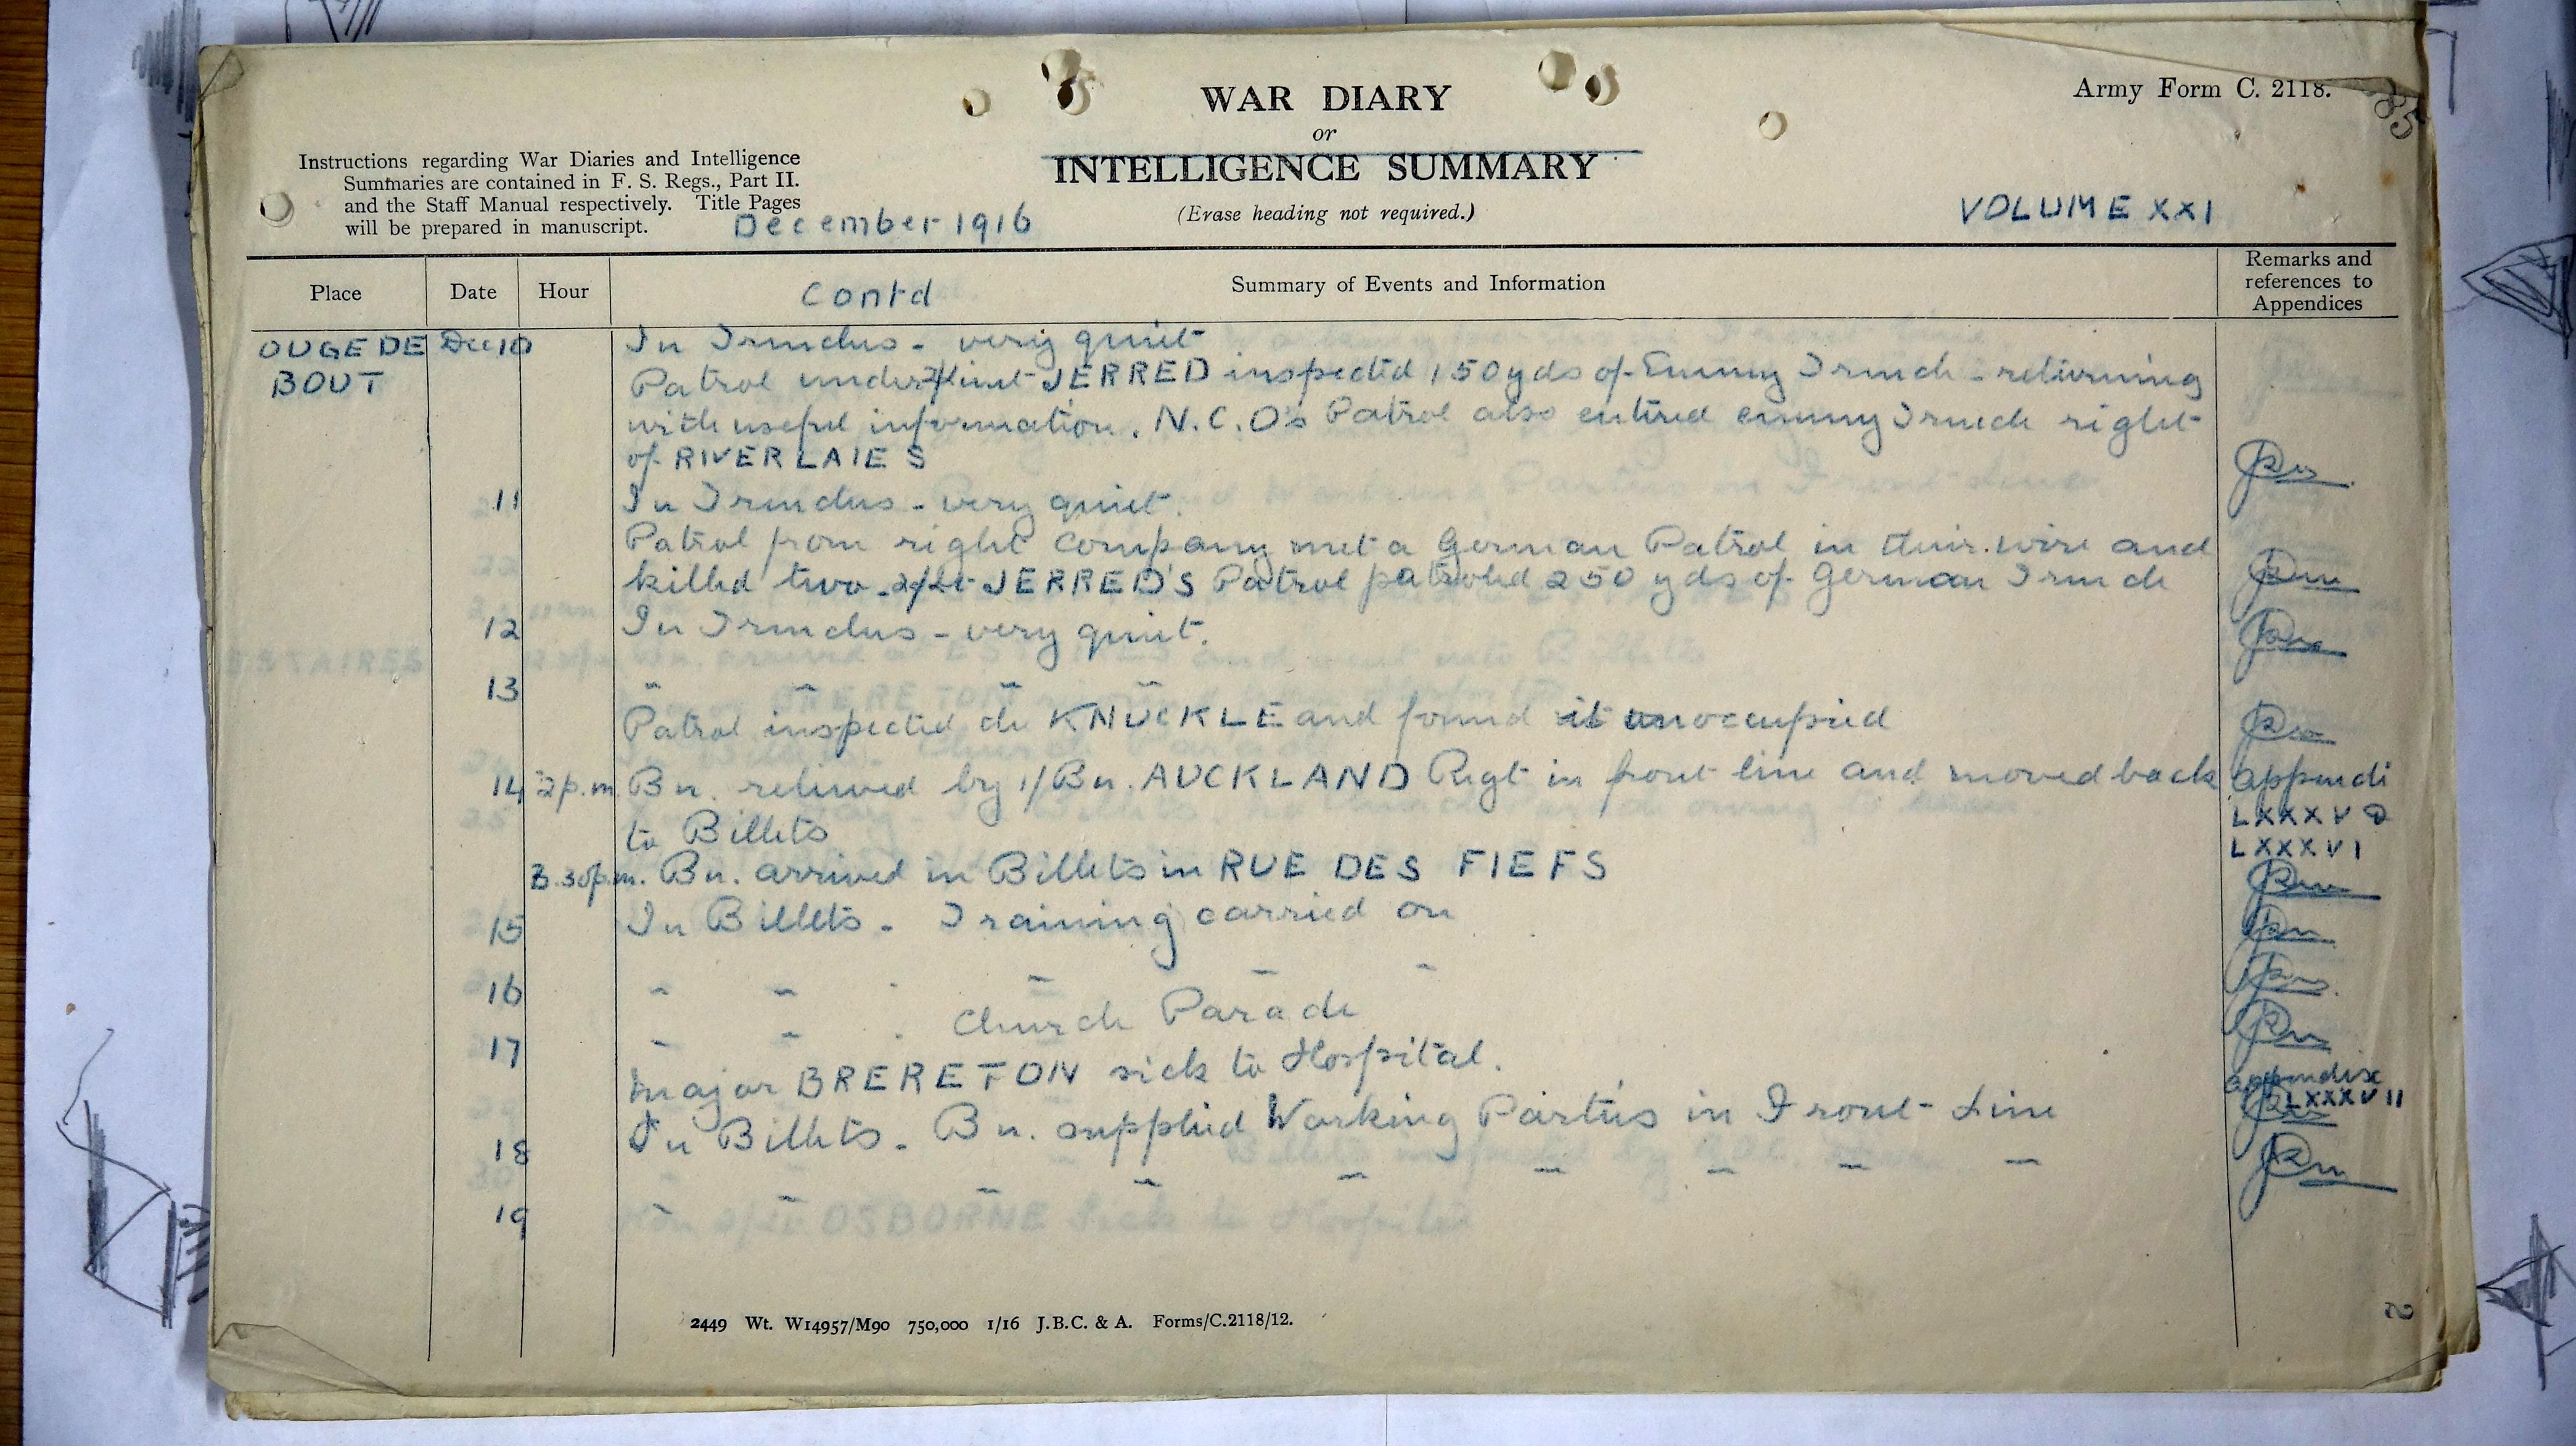 WAR DIARY
or
INTELLIGENCE SUMMARY
(Erase heading not required.)
Army Form C. 2118.
85
Instructions regarding War Diaries and Intelligence
Summaries are contained in F. S. Regs., Part II.
and the Staff Manual respectively. Title Pages
will be prepared in manuscript.
December 1916
VOLUME XXI
Place Date Hour Contd Summary of Events and Information Remarks and references to Appendices
OUGE DE Dec 10 In Trenches - very quiet
BOUT Patrol under 2/Lieut JERRED inspected 150 yds of Enemy Trench - returning
with useful information. N.C.O's Patrol also entered enemy Trench right
of RIVER LAIES
11 In Trenches - very quiet.
Patrol from right Company met a German Patrol in their wire and
killed two. 2/Lt JERRED'S Patrol patroled 250 yds of German Trench
12 In Trenches - very quiet.
13 " " " "
Patrol inspected the KNUCKLE and found it unoccupied
14 2 p.m. Bn. relieved by 1/Bn. AUCKLAND Regt in front line and moved back appendi
to Billets LXXXV &
LXXXVI
3.30 p.m. Bn. arrived in Billets in RUE DES FIEFS
15 In Billets - Training carried on
16 " " " " " "
17 " " " Church Parade
Major BRERETON sick to Hospital. appendix
LXXXVII
18 In Billets - Bn. supplied Working Parties in Front Line
19 " " " " " " " " "
2449 Wt. W14957/M90 750,000 1/16 J.B.C. & A. Forms/C.2118/12.